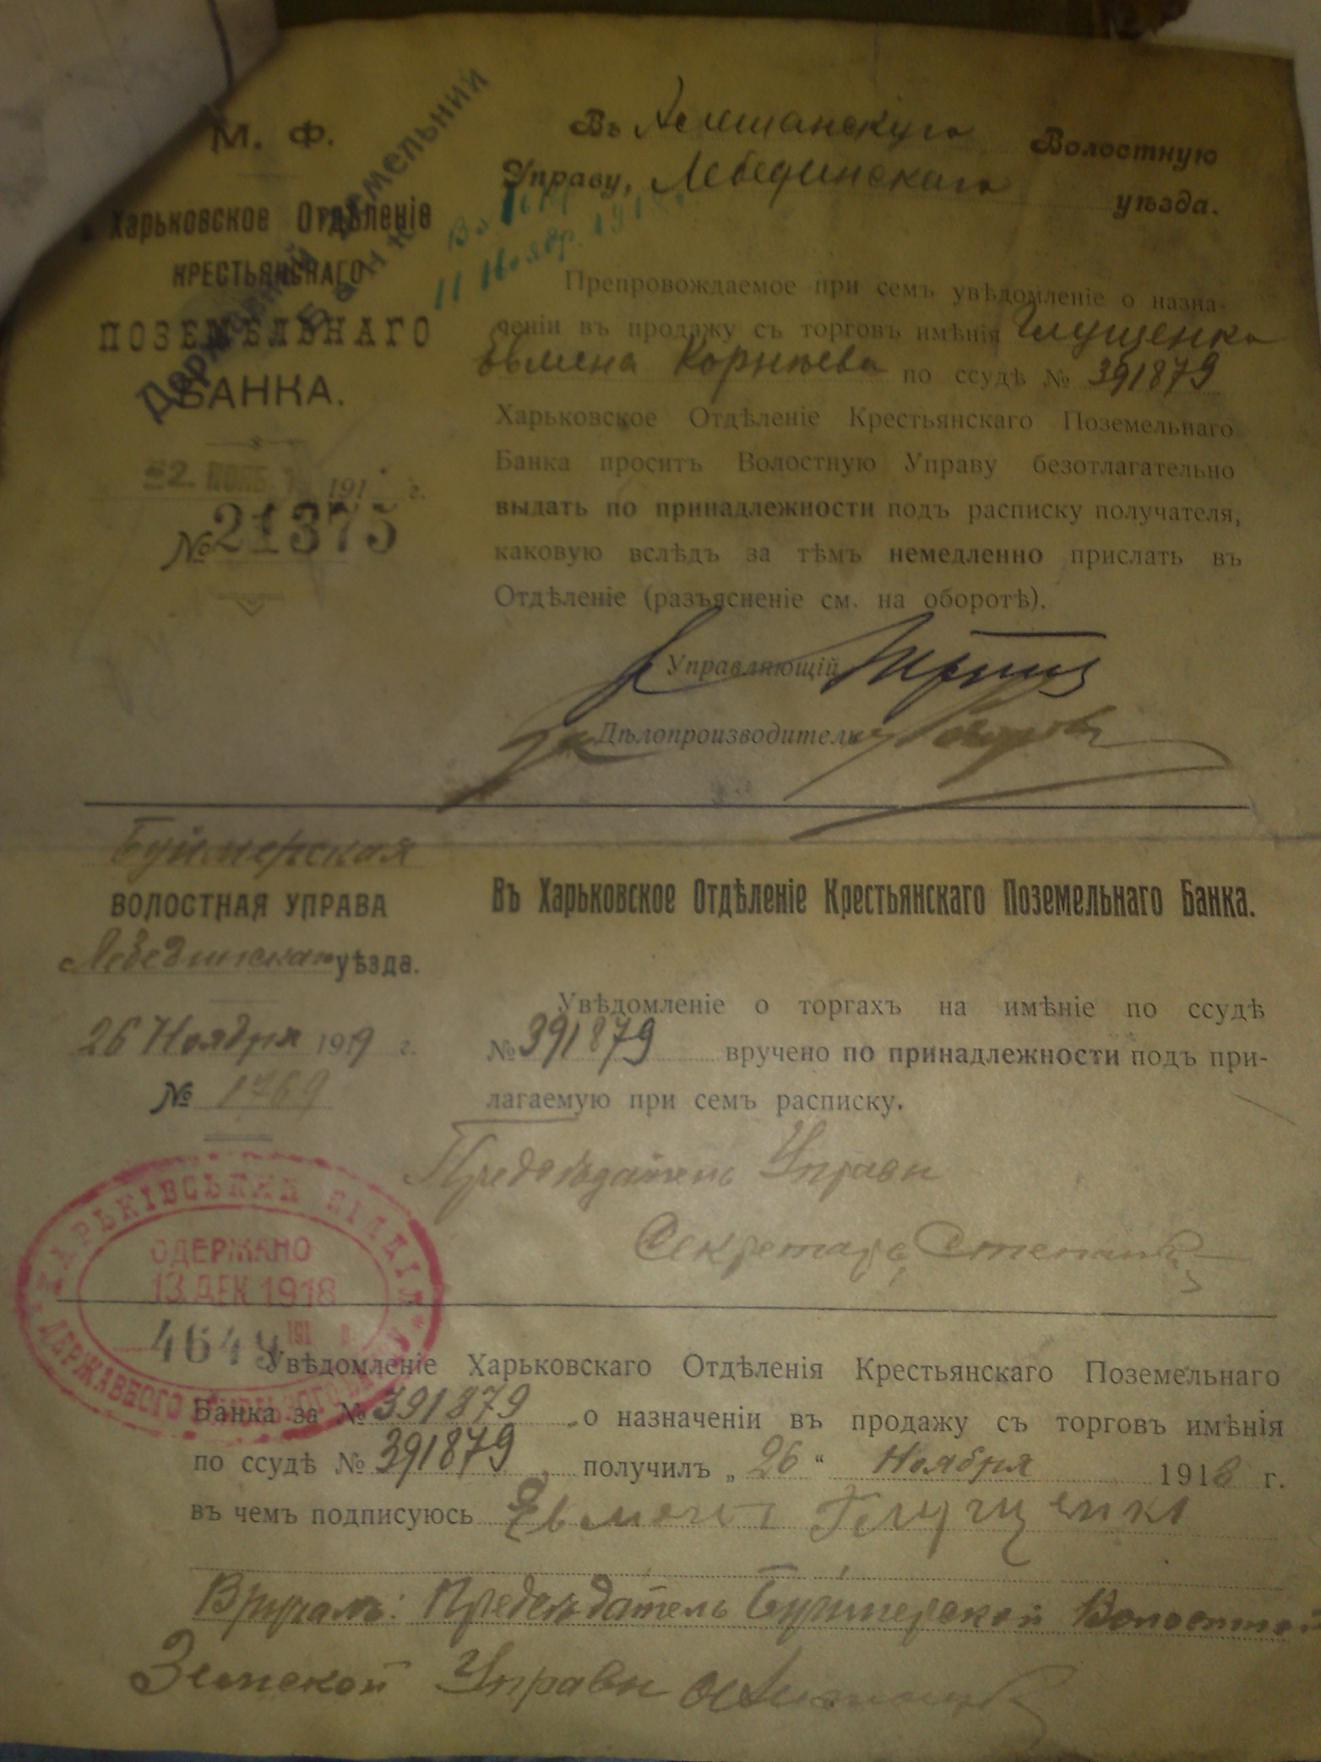 М. Ф.
Харьковское Отдѣленіе
КРЕСТЬЯНСКАГО
ПОЗЕМЕЛЬНАГО
БАНКА.
Державний Земельний
Банк
191 г.
№ 21375
Въ Волостную
Управу, Лебединскаго уѣзда.
11 Ноябр.
Препровождаемое при семъ увѣдомленіе о назна-
ченіи въ продажу съ торговъ имѣнія Глущенка
Евмена Корнѣева по ссудѣ № 391879
Харьковское Отдѣленіе Крестьянскаго Поземельнаго
Банка проситъ Волостную Управу безотлагательно
выдать по принадлежности подъ расписку получателя,
каковую вслѣдъ за тѣмъ немедленно прислать въ
Отдѣленіе (разъясненіе см. на оборотѣ).
Управляющій
Дѣлопроизводитель
Буймерская
ВОЛОСТНАЯ УПРАВА
Лебединскаго уѣзда.
26 Ноября 1919 г.
№ 1769
Въ Харьковское Отдѣленіе Крестьянскаго Поземельнаго Банка.
Увѣдомленіе о торгахъ на имѣніе по ссудѣ
№ 391879 вручено по принадлежности подъ при-
лагаемую при семъ расписку.
Предсѣдатель Управы
Секретарь
ХАРЬКІВСЬКИЙ ВІДДІЛ
ОДЕРЖАНО
13 ДЕК 1918
4649 191 р.
ДЕРЖАВНОГО ЗЕМЕЛЬНОГО
Увѣдомленіе Харьковскаго Отдѣленія Крестьянскаго Поземельнаго
Банка за № 391879 о назначеніи въ продажу съ торговъ имѣнія
по ссудѣ № 391879, получилъ „26“ Ноября 1918 г.
въ чемъ подписуюсь Евмент Глущенко
Вручалъ: Предсѣдатель Буймерской Волостной
Земской Управы